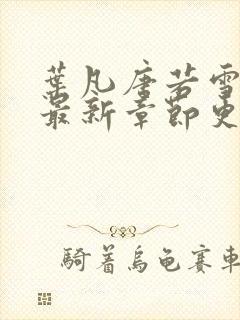 葉凡唐若雪
最新章節更
騎着烏龜賽車